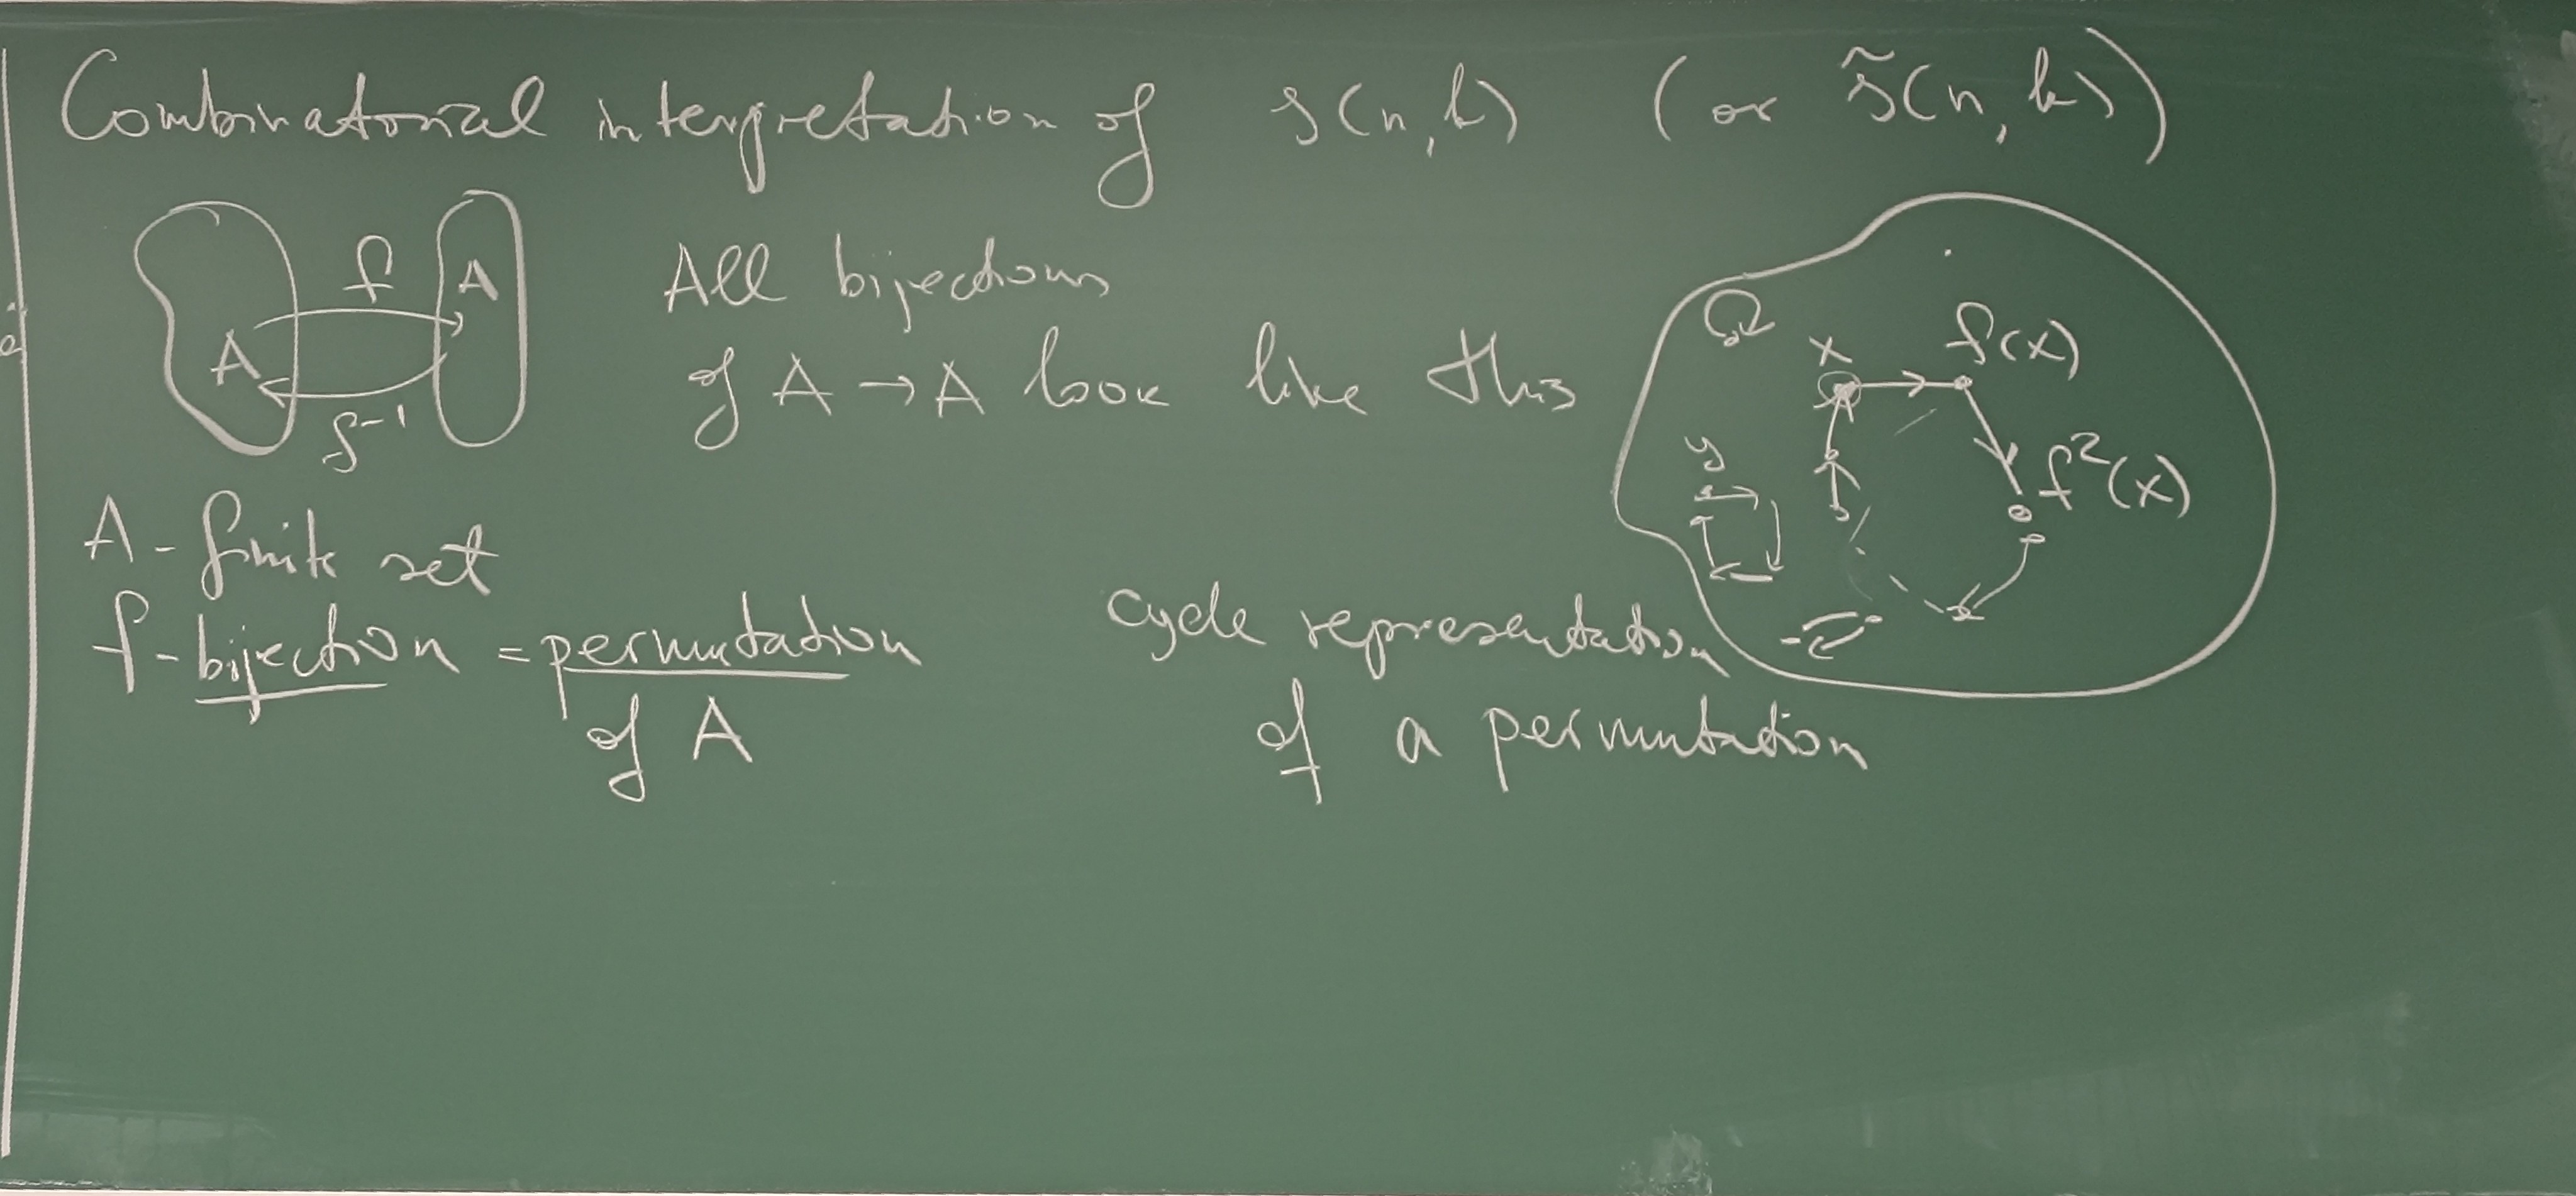 Combinatorial interpretation of s(n,k) (or s̃(n,k))
f
A
A
f⁻¹
All bijections
of A → A look like this
x
f(x)
y
f²(x)
A - finite set
f - bijection = permutation
of A
cycle representation
of a permutation